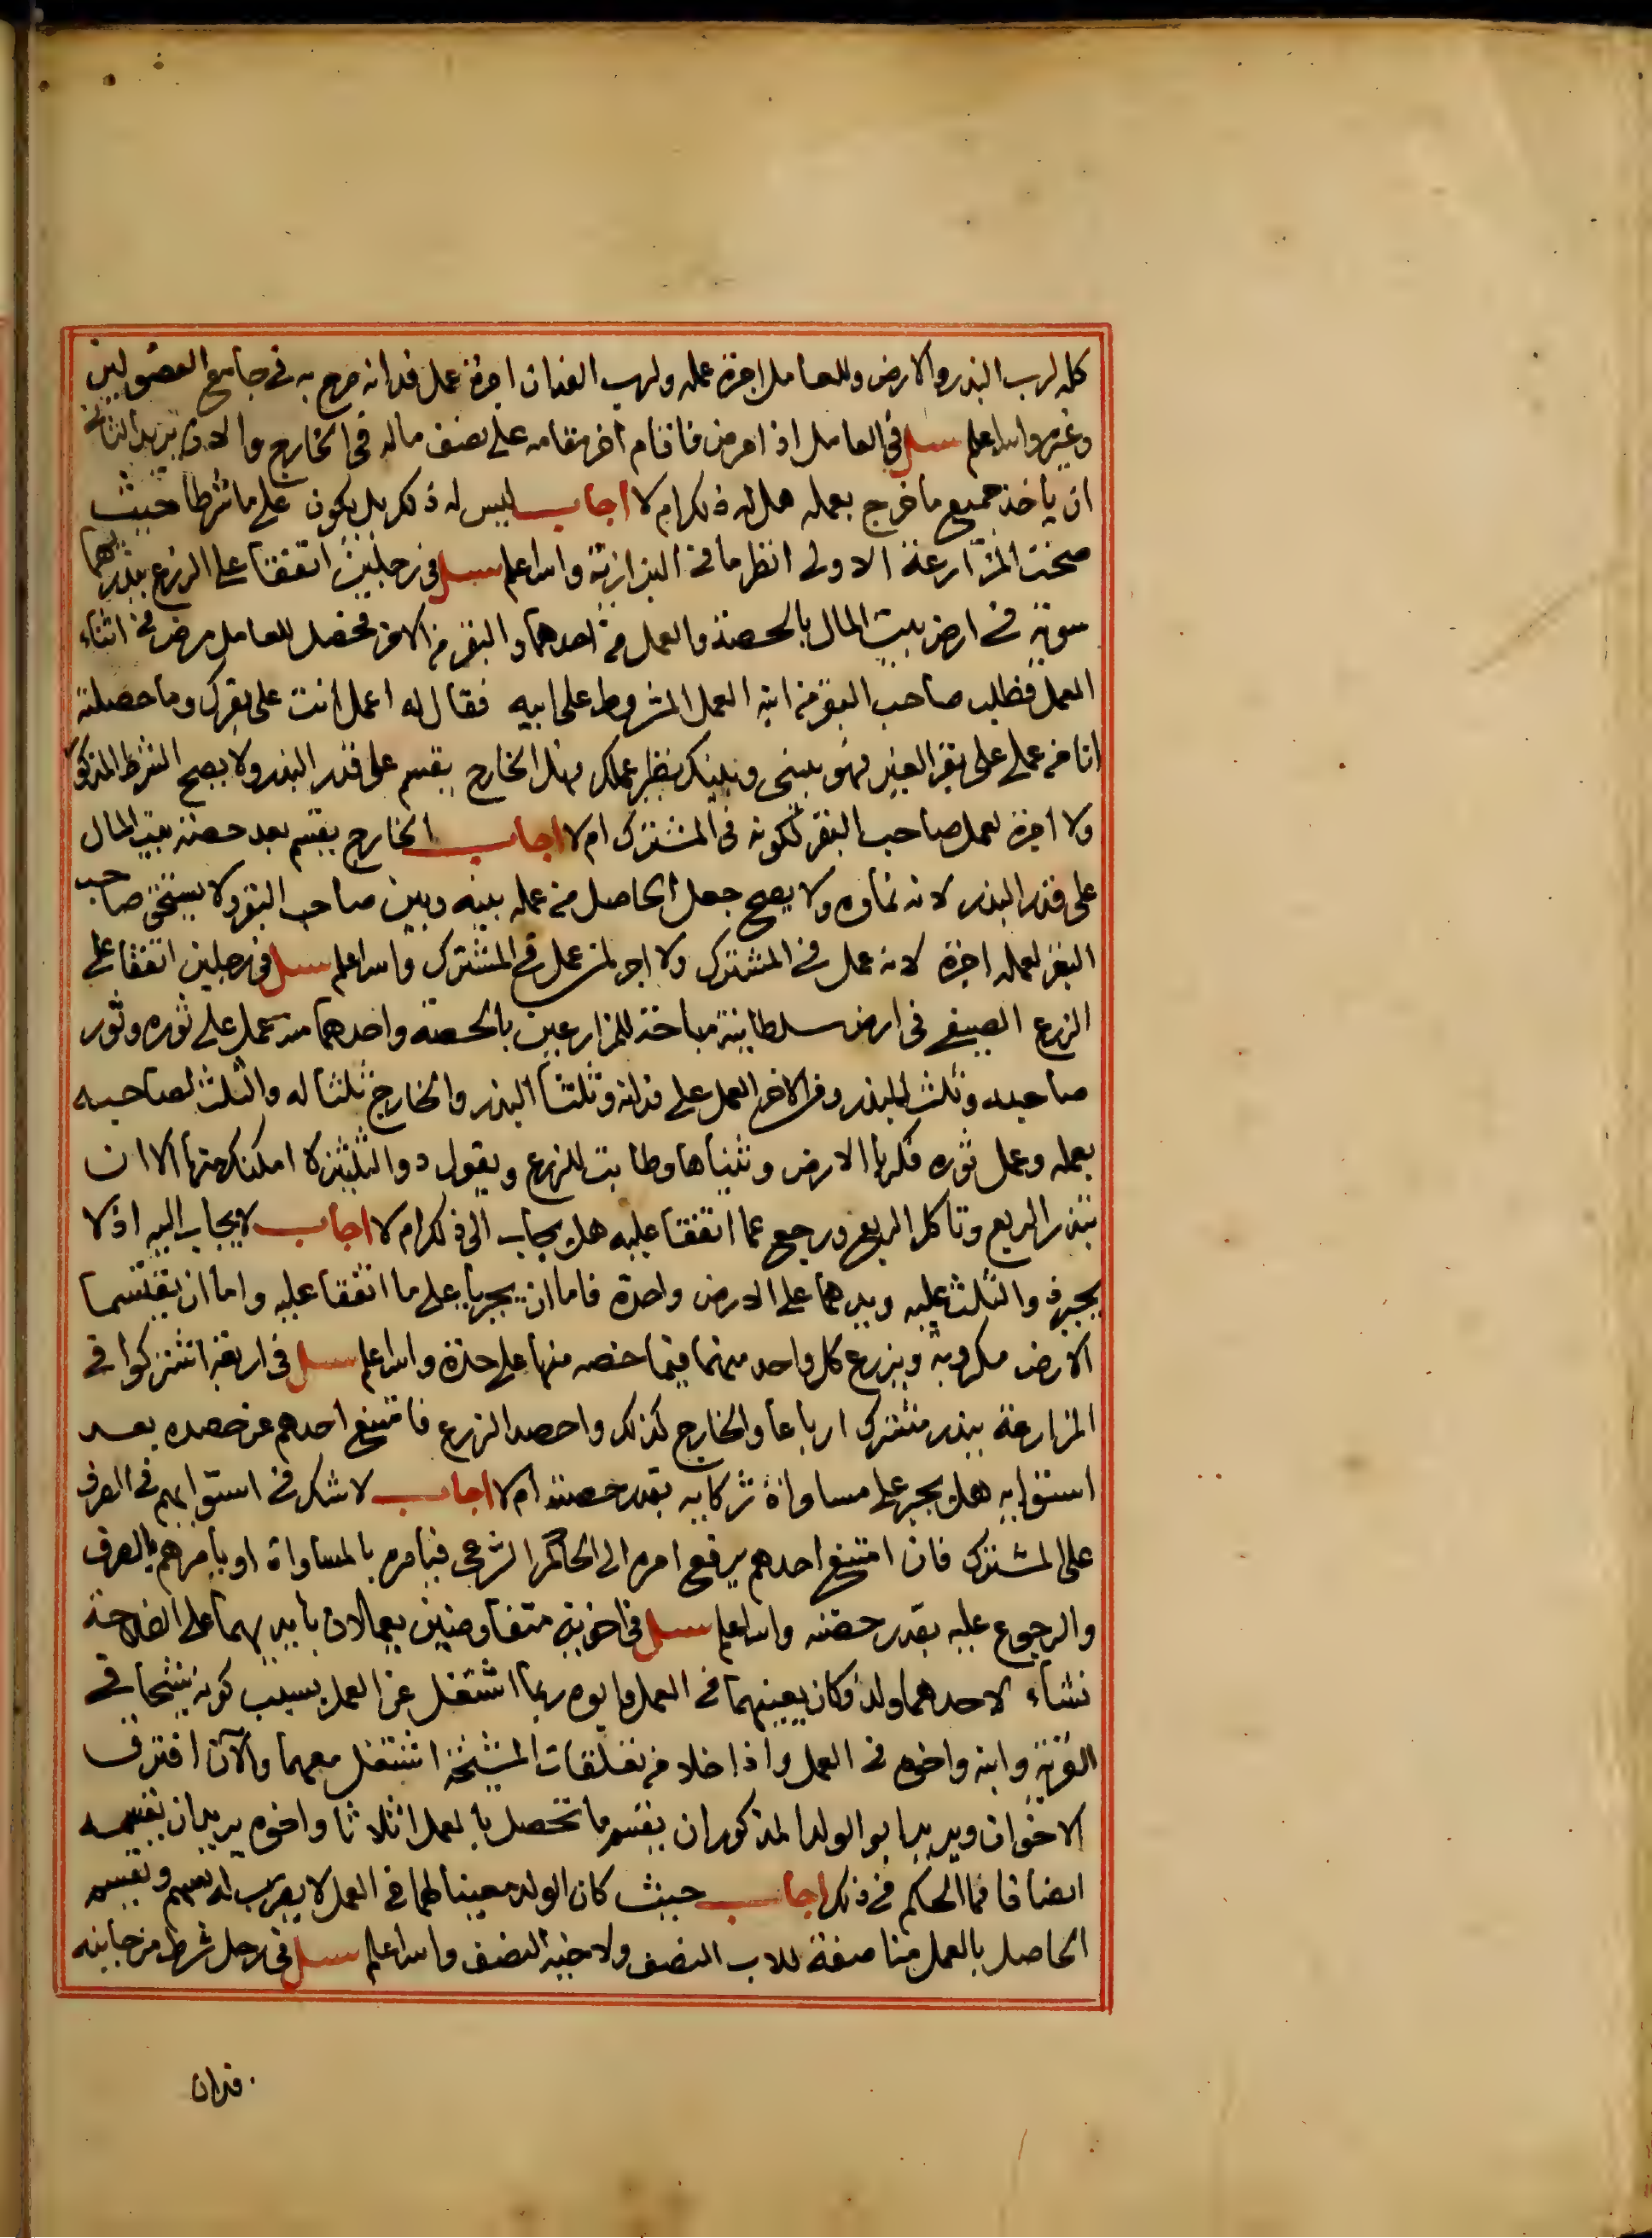 كله لرب البذر والارض وللعامل اجرة عمله ولرب الفدان اجرة عمل فدانه صرح به في جامع الفصولين
وغيره والله اعلم سئل في العامل اذا مرض فاقام اخر مقامه على نصف ماله في الخارج والان يريد الثاني
ان ياخذ جميع ما خرج بعمله هل له ذلك ام لا اجاب ليس له ذلك بل يكون على ما شرطا حيث
صحت المزارعة الاولى انظر ما في البزازية والله اعلم سئل في رجلين اتفقا على الزرع ببذرهما
سوية في ارض بيت المال بالحصة والعمل من احدهما والبقر من الاخر فحصل للعامل مرض في اثناء
العمل فطلب صاحب البقر من ابنه العمل المشروط على ابيه فقال له اعمل انت على بقرك وما حصلته
انا من عملي على بقر الغير فهو بيني وبينك نظير عملك فهل الخارج يقسم على قدر البذر ولا يصح الشرط المذكور
ولا اجرة لعمل صاحب البقر لكونه في المشترك ام لا اجاب الخارج يقسم بعد حصة بيت المال
على قدر البذر لانه نماؤه ولا يصح جعل الحاصل من عمله بينه وبين صاحب البقر ولا يستحق صاحب
البقر لعمله اجرة لانه عمل في المشترك ولا اجر لمن عمل في المشترك والله اعلم سئل في رجلين اتفقا على
الزرع الصيفي في ارض سلطانية مباحة للمزارعين بالحصة واحدهما منه عمل على ثوره وثور
صاحبه وثلث البذر ومن الاخر العمل على فدانه وثلثا البذر والخارج ثلثا له والثلث لصاحبه
بعمله وعمل ثوره فكربا الارض وثنياها وطابت للزرع ويقول ذو الثلثين لا امكنك منها الا ان
تبذر الربع وتاكل الربع ورجع عما اتفقا عليه هل يجاب الى ذلك ام لا اجاب لا يجاب اليه اذ لا
يجبر ذو الثلث عليه ويدهما على الارض واحدة فاما ان يجريا على ما اتفقا عليه واما ان يقتسما
الارض مكروبة ويزرع كل واحد منهما فيما خصه منها على حدة والله اعلم سئل في اربعة اشتركوا في
المزارعة ببذر مشترك ارباعا والخارج كذلك واحصد الزرع فامتنع احدهم عن حصده بعد
استوائه هل يجبر على مساواة شركائه بقدر حصته ام لا اجاب لا شك في استوائهم في الصرف
على المشترك فان امتنع احدهم يرفع امره الى الحاكم الشرعي فيامره بالمساواة او يامرهم بالصرف
والرجوع عليه بقدر حصته والله اعلم سئل في اخوين متفاوضين يعملان بايديهما على الفلاحة
نشاء لاحدهما ولد وكان يعينهما في العمل وابوه ربما اشتغل عن العمل بسبب كونه شيخا في
القرية وابنه واخوه في العمل واذا خلا من تعلقات المشيخة اشتغل معهما والان افترق
الاخوان ويريد ابو الولد المذكور ان يقسم ما تحصل بالعمل اثلاثا واخوه يريد ان يقسمه
انصافا فما الحكم في ذلك اجاب حيث كان الولد معينا لهما في العمل لا يضرب له بسهم ويقسم
الحاصل بالعمل مناصفة للاب النصف ولاخيه النصف والله اعلم سئل في رجل شرط من جانبه
فدان